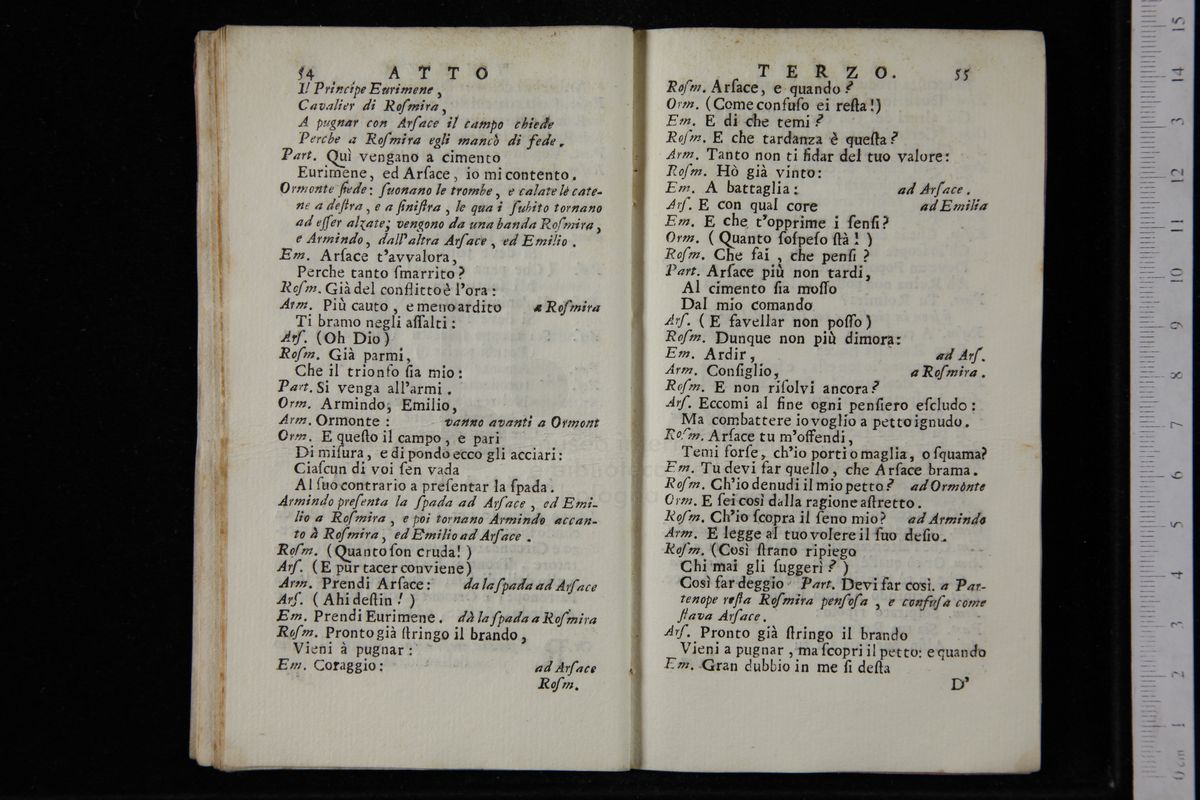 54 ATTO
Il Principe Eurimene,
Cavalier di Roſmira,
A pugnar con Arſace il campo chiede
Perche a Roſmira egli mancò di fede.
Part. Quì vengano a cimento
Eurimene, ed Arſace, io mi contento.
Ormonte ſiede: ſuonano le trombe, e calate le cate-
ne a deſtra, e a ſiniſtra, le qua i ſubito tornano
ad eſſer alzate; vengono da una banda Roſmira,
e Armindo, dall'altra Arſace, ed Emilio.
Em. Arſace t'avvalora,
Perche tanto ſmarrito?
Roſm. Già del conflitto è l'ora:
Arm. Più cauto, e meno ardito a Roſmira
Ti bramo negli aſſalti:
Arſ. (Oh Dio)
Roſm. Già parmi,
Che il trionfo ſia mio:
Part. Si venga all'armi.
Orm. Armindo, Emilio,
Arm. Ormonte: vanno avanti a Ormont
Orm. E queſto il campo, e pari
Di miſura, e di pondo ecco gli acciari:
Ciaſcun di voi ſen vada
Al ſuo contrario a preſentar la ſpada.
Armindo preſenta la ſpada ad Arſace, ed Emi-
lio a Roſmira, e poi tornano Armindo accan-
to à Roſmira, ed Emilio ad Arſace.
Roſm. (Quanto ſon cruda!)
Arſ. (E pur tacer conviene)
Arm. Prendi Arſace: da la ſpada ad Arſace
Arſ. (Ahi deſtin!)
Em. Prendi Eurimene. dà la ſpada a Roſmira
Roſm. Pronto già ſtringo il brando,
Vieni à pugnar:
Em. Coraggio: ad Arſace
Roſm.
TERZO. 55
Roſm. Arſace, e quando?
Orm. (Come confuſo ei reſta!)
Em. E di che temi?
Roſm. E che tardanza è queſta?
Arm. Tanto non ti fidar del tuo valore:
Roſm. Hò già vinto:
Em. A battaglia: ad Arſace.
Arſ. E con qual core ad Emilia
Em. E che t'opprime i ſenſi?
Orm. (Quanto ſoſpeſo ſtà!)
Roſm. Che fai, che penſi?
Part. Arſace più non tardi,
Al cimento ſia moſſo
Dal mio comando
Arſ. (E favellar non poſſo)
Roſm. Dunque non più dimora:
Em. Ardir, ad Arſ.
Arm. Conſiglio, a Roſmira.
Roſm. E non riſolvi ancora?
Arſ. Eccomi al fine ogni penſiero eſcludo:
Ma combattere io voglio a petto ignudo.
Roſm. Arſace tu m'offendi,
Temi forſe, ch'io porti o maglia, o ſquama?
Em. Tu devi far quello, che Arſace brama.
Roſm. Ch'io denudi il mio petto? ad Ormonte
Orm. E ſei così dalla ragione aſtretto.
Roſm. Ch'io ſcopra il ſeno mio? ad Armindo
Arm. E legge al tuo volere il ſuo deſio.
Roſm. (Così ſtrano ripiego
Chi mai gli ſuggerì?)
Così far deggio Part. Devi far così. a Par-
tenope reſta Roſmira penſoſa, e confuſa come
ſtava Arſace.
Arſ. Pronto già ſtringo il brando
Vieni a pugnar, ma ſcopri il petto: e quando
Em. Gran dubbio in me ſi deſta
D'
15
14
3
12
11
10
9
8
7
6
5
4
3
2
1
0 cm